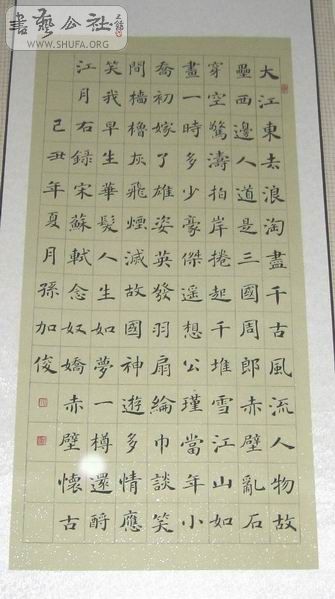 書藝公社
WWW.SHUFA.ORG
大江東去浪淘盡千古風流人物故
壘西邊人道是三國周郎赤壁亂石
穿空驚濤拍岸捲起千堆雪江山如
畫一時多少豪傑遙想公瑾當年小
喬初嫁了雄姿英發羽扇綸巾談笑
間檣櫓灰飛煙滅故國神遊多情應
笑我早生華髮人生如夢一樽還酹
江月右録宋蘇軾念奴嬌赤壁懷古
己丑年夏月孫加俊